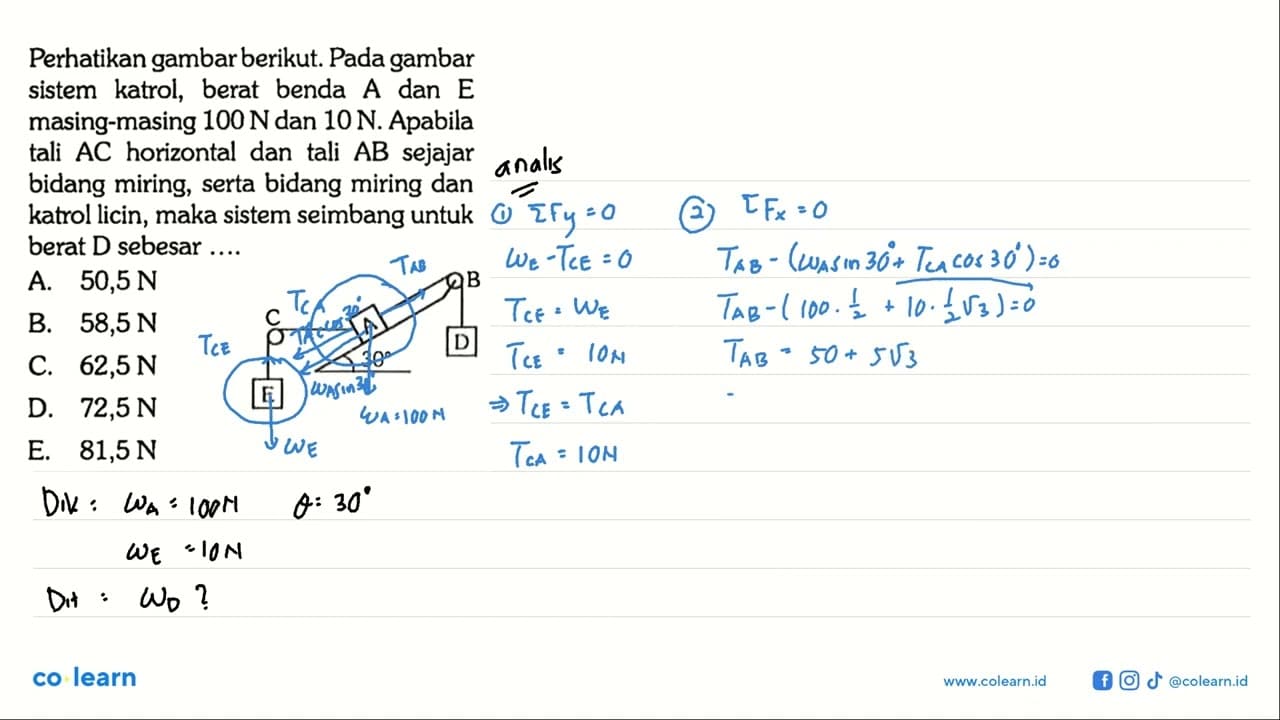 Perhatikan gambar berikut. Pada gambar
sistem katrol, berat benda A dan E
masing-masing 100 N dan 10 N. Apabila
tali AC horizontal dan tali AB sejajar
bidang miring, serta bidang miring dan
katrol licin, maka sistem seimbang untuk
berat D sebesar ....
A. 50,5 N
B. 58,5 N
C. 62,5 N
D. 72,5 N
E. 81,5 N
T_AB
B
T_CA
C
A
T_CE
30°
D
E
W_A sin 30°
W_A = 100 N
W_E
Dik : W_A = 100 N θ = 30°
W_E = 10 N
Dit : W_D ?
analis
① ΣFy = 0
W_E - T_CE = 0
T_CE = W_E
T_CE = 10 N
⇒ T_CE = T_CA
T_CA = 10 N
② ΣFx = 0
T_AB - (W_A sin 30° + T_CA cos 30°) = 0
T_AB - (100 . 1/2 + 10 . 1/2 √3) = 0
T_AB = 50 + 5√3
co·learn
www.colearn.id
@colearn.id